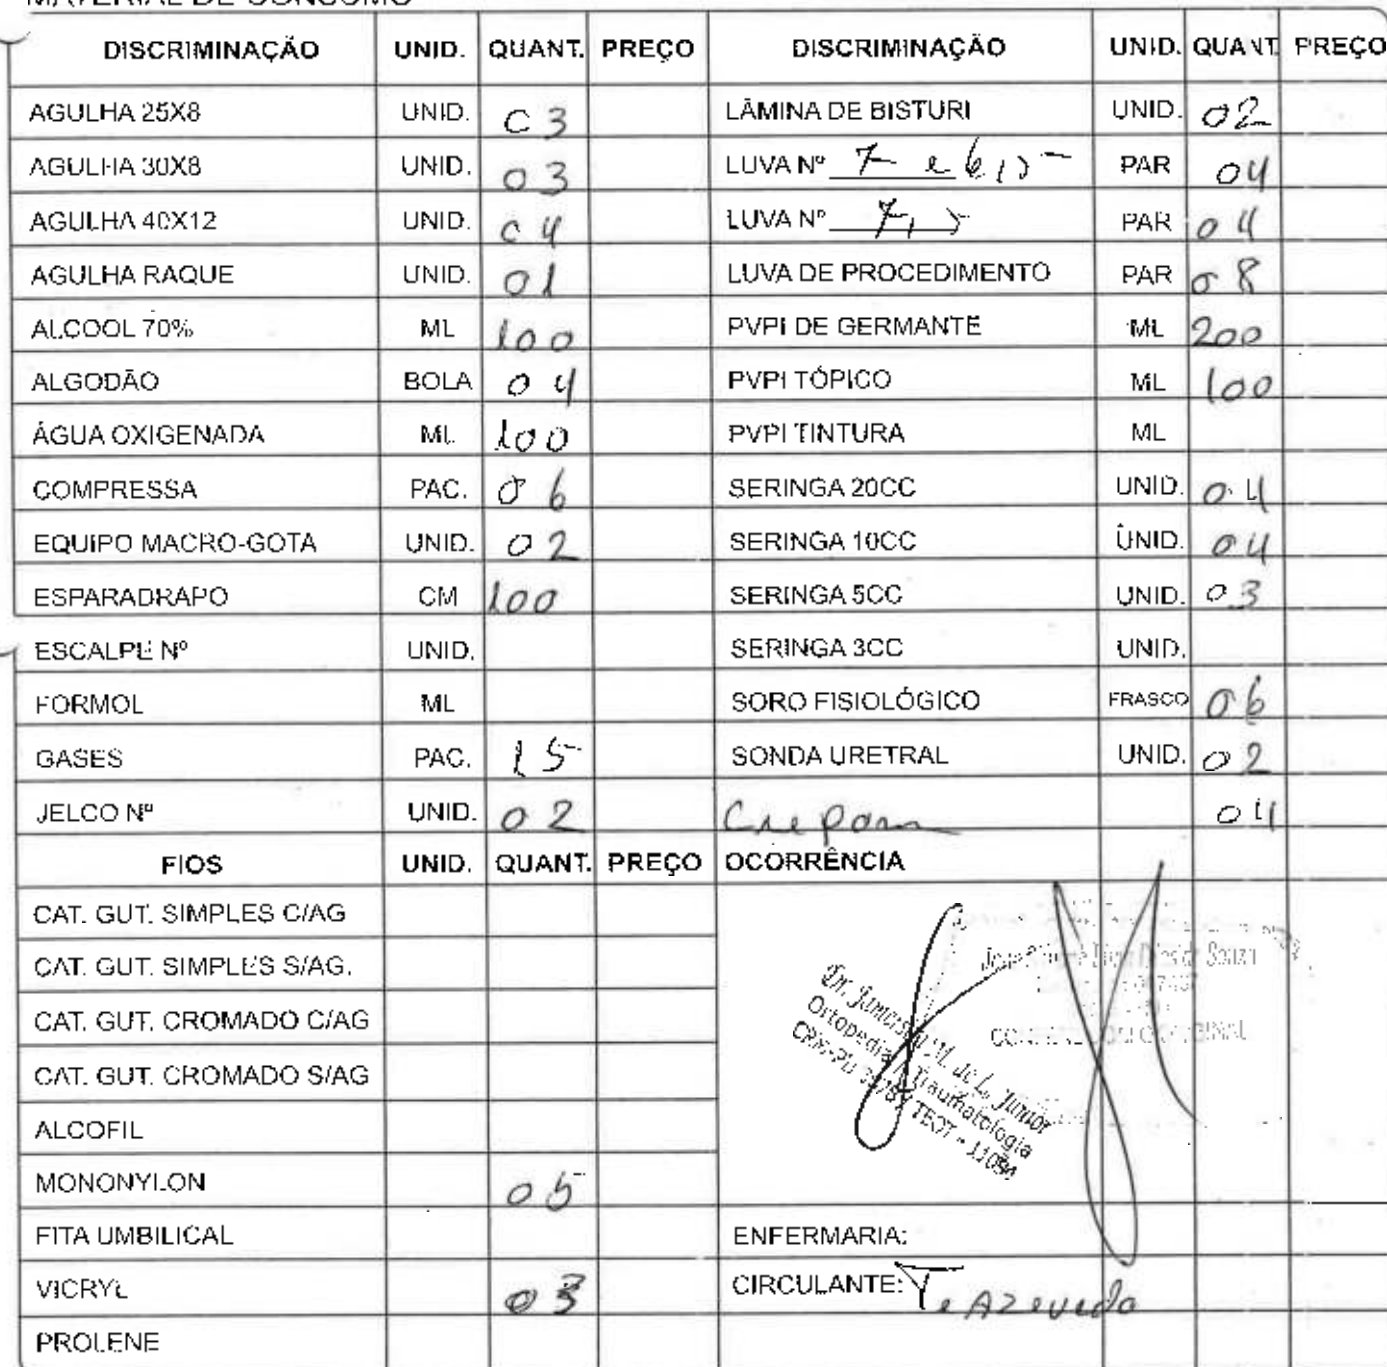 MATERIAL DE CONSUMO
DISCRIMINAÇÃO UNID. QUANT. PREÇO DISCRIMINAÇÃO UNID. QUANT. PREÇO
AGULHA 25X8 UNID. 03 LÂMINA DE BISTURI UNID. 02
AGULHA 30X8 UNID. 03 LUVA Nº 7 e 6,5 PAR 04
AGULHA 40X12 UNID. 04 LUVA Nº 7,5 PAR 04
AGULHA RAQUE UNID. 01 LUVA DE PROCEDIMENTO PAR 08
ALCOOL 70% ML 100 PVPI DE GERMANTE ML 200
ALGODÃO BOLA 04 PVPI TÓPICO ML 100
ÁGUA OXIGENADA ML 100 PVPI TINTURA ML
COMPRESSA PAC. 06 SERINGA 20CC UNID. 04
EQUIPO MACRO-GOTA UNID. 02 SERINGA 10CC UNID. 04
ESPARADRAPO CM 100 SERINGA 5CC UNID. 03
ESCALPE Nº UNID. SERINGA 3CC UNID.
FORMOL ML SORO FISIOLÓGICO FRASCO 06
GASES PAC. 15 SONDA URETRAL UNID. 02
JELCO Nº UNID. 02 Crepom 04
FIOS UNID. QUANT. PREÇO OCORRÊNCIA
CAT. GUT. SIMPLES C/AG
CAT. GUT. SIMPLES S/AG.
CAT. GUT. CROMADO C/AG
CAT. GUT. CROMADO S/AG
ALCOFIL
MONONYLON 05
FITA UMBILICAL
VICRYL 03
PROLENE
Dr. M. de L. Junior
Ortopedia Traumatologia
TEOT - 11094
Souza
ENFERMARIA:
CIRCULANTE: Azevedo